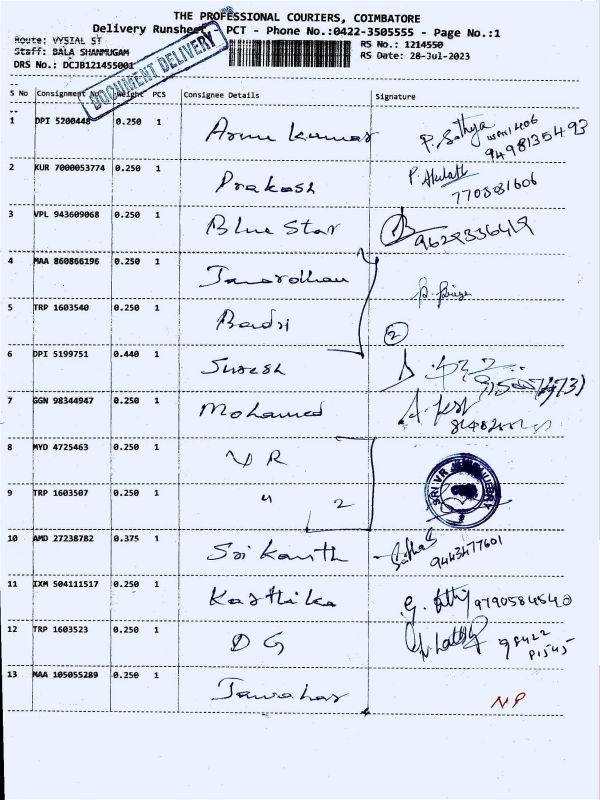 THE PROFESSIONAL COURIERS, COIMBATORE
Delivery Runsheet PCT - Phone No.:0422-3505555 - Page No.:1
Route: VYSIAL ST
RS No.: 1214550
Staff: BALA SHANMUGAM
RS Date: 28-Jul-2023
DRS No.: DCJB121455001
DOCUMENT DELIVERY
S No Consignment No. Weight PCS Consignee Details Signature
1 DPI 5200448 0.250 1 Arun kumar P. Sathya 9498135493
2 KUR 7000053774 0.250 1 Prakash P. 7708831606
3 VPL 943609068 0.250 1 Blue Star 9629336419
4 MAA 860866196 0.250 1 Janardhan
5 TRP 1603540 0.250 1 Badri 2
6 DPI 5199751 0.440 1 Suresh
7 GGN 98344947 0.250 1 Mohamed
8 MYD 4725463 0.250 1 VR
9 TRP 1603507 0.250 1 " 2
SRI VR
10 AMD 27238782 0.375 1 Sri kanth 9443477601
11 IXM 504111517 0.250 1 Karthika 9790584540
12 TRP 1603523 0.250 1 D G
13 MAA 105055289 0.250 1 Jawahar NP